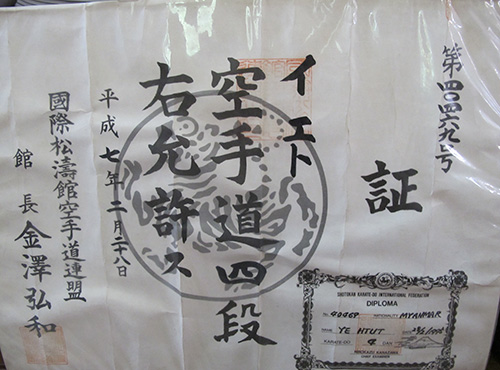 第四〇四六九号
証
イエト
空手道四段
右允許ス
平成七年二月二十八日
國際松濤館空手道連盟
館長 金澤弘和
SHOTOKAN KARATE-DO INTERNATIONAL FEDERATION
DIPLOMA
No. 40469 NATIONALITY MYANMAR
NAME YE HTUT
KARATE-DO 4 DAN
HIROKAZU KANAZAWA
CHIEF EXAMINER